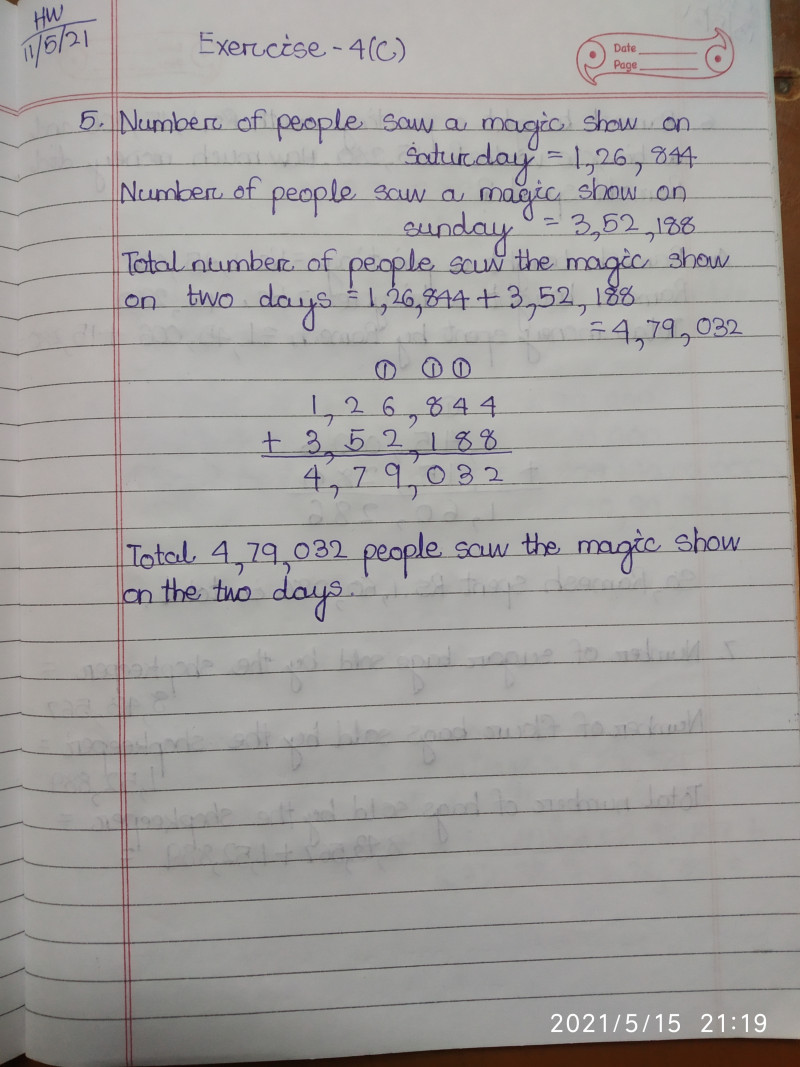 HW
11/5/21
Exercise - 4(C)
Date
Page
5. Number of people saw a magic show on
saturday = 1,26,844
Number of people saw a magic show on
sunday = 3,52,188
Total number of people saw the magic show
on two days = 1,26,844 + 3,52,188
= 4,79,032
1 1 1
1,26,844
+ 3,52,188
4,79,032
Total 4,79,032 people saw the magic show
on the two days.
2021/5/15 21:19